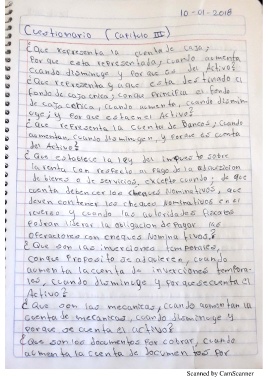 10-01-2018
Cuestionario (Capitulo III)
¿Que representa la cuenta de caja,
Por que esta representada, cuando aumenta
cuando disminuye y Por que es del Activo?
¿Que representa y a que esta destinado el
fondo de caja chica, con que principia el fondo
de caja chica, cuando aumenta, cuando disminuye; y Por que esta en el Activo?
¿Que representa la cuenta de Bancos, cuando
aumenta, cuando disminuyen, y Porque es cuenta
del Activo?
¿Que establece la ley del impuesto sobre
la renta con respecto al Pago de la adquisicion
de bienes o de servicios, excepto cuando; de que
cuenta deben ser los cheques Nominativos, que
deven contener los cheques Nominativos en el
reverso y cuando las autoridades fiscales
podran liberar la obligacion de Pagar las
operaciones con cheques Nominativos?
¿Que son las inverciones temporales,
con que Proposito se adquieren, cuando
aumenta la cuenta de inverciones temporales, cuando disminuye y porque se cuenta el
Activo?
¿Que son las mecanicas, cuando aumentan la
cuenta de mecanicas, cuando disminuye y
porque se cuenta el activo?
¿Que son los documentos Por cobrar, cuando
aumenta la cuenta de documentos por
Scanned by CamScanner